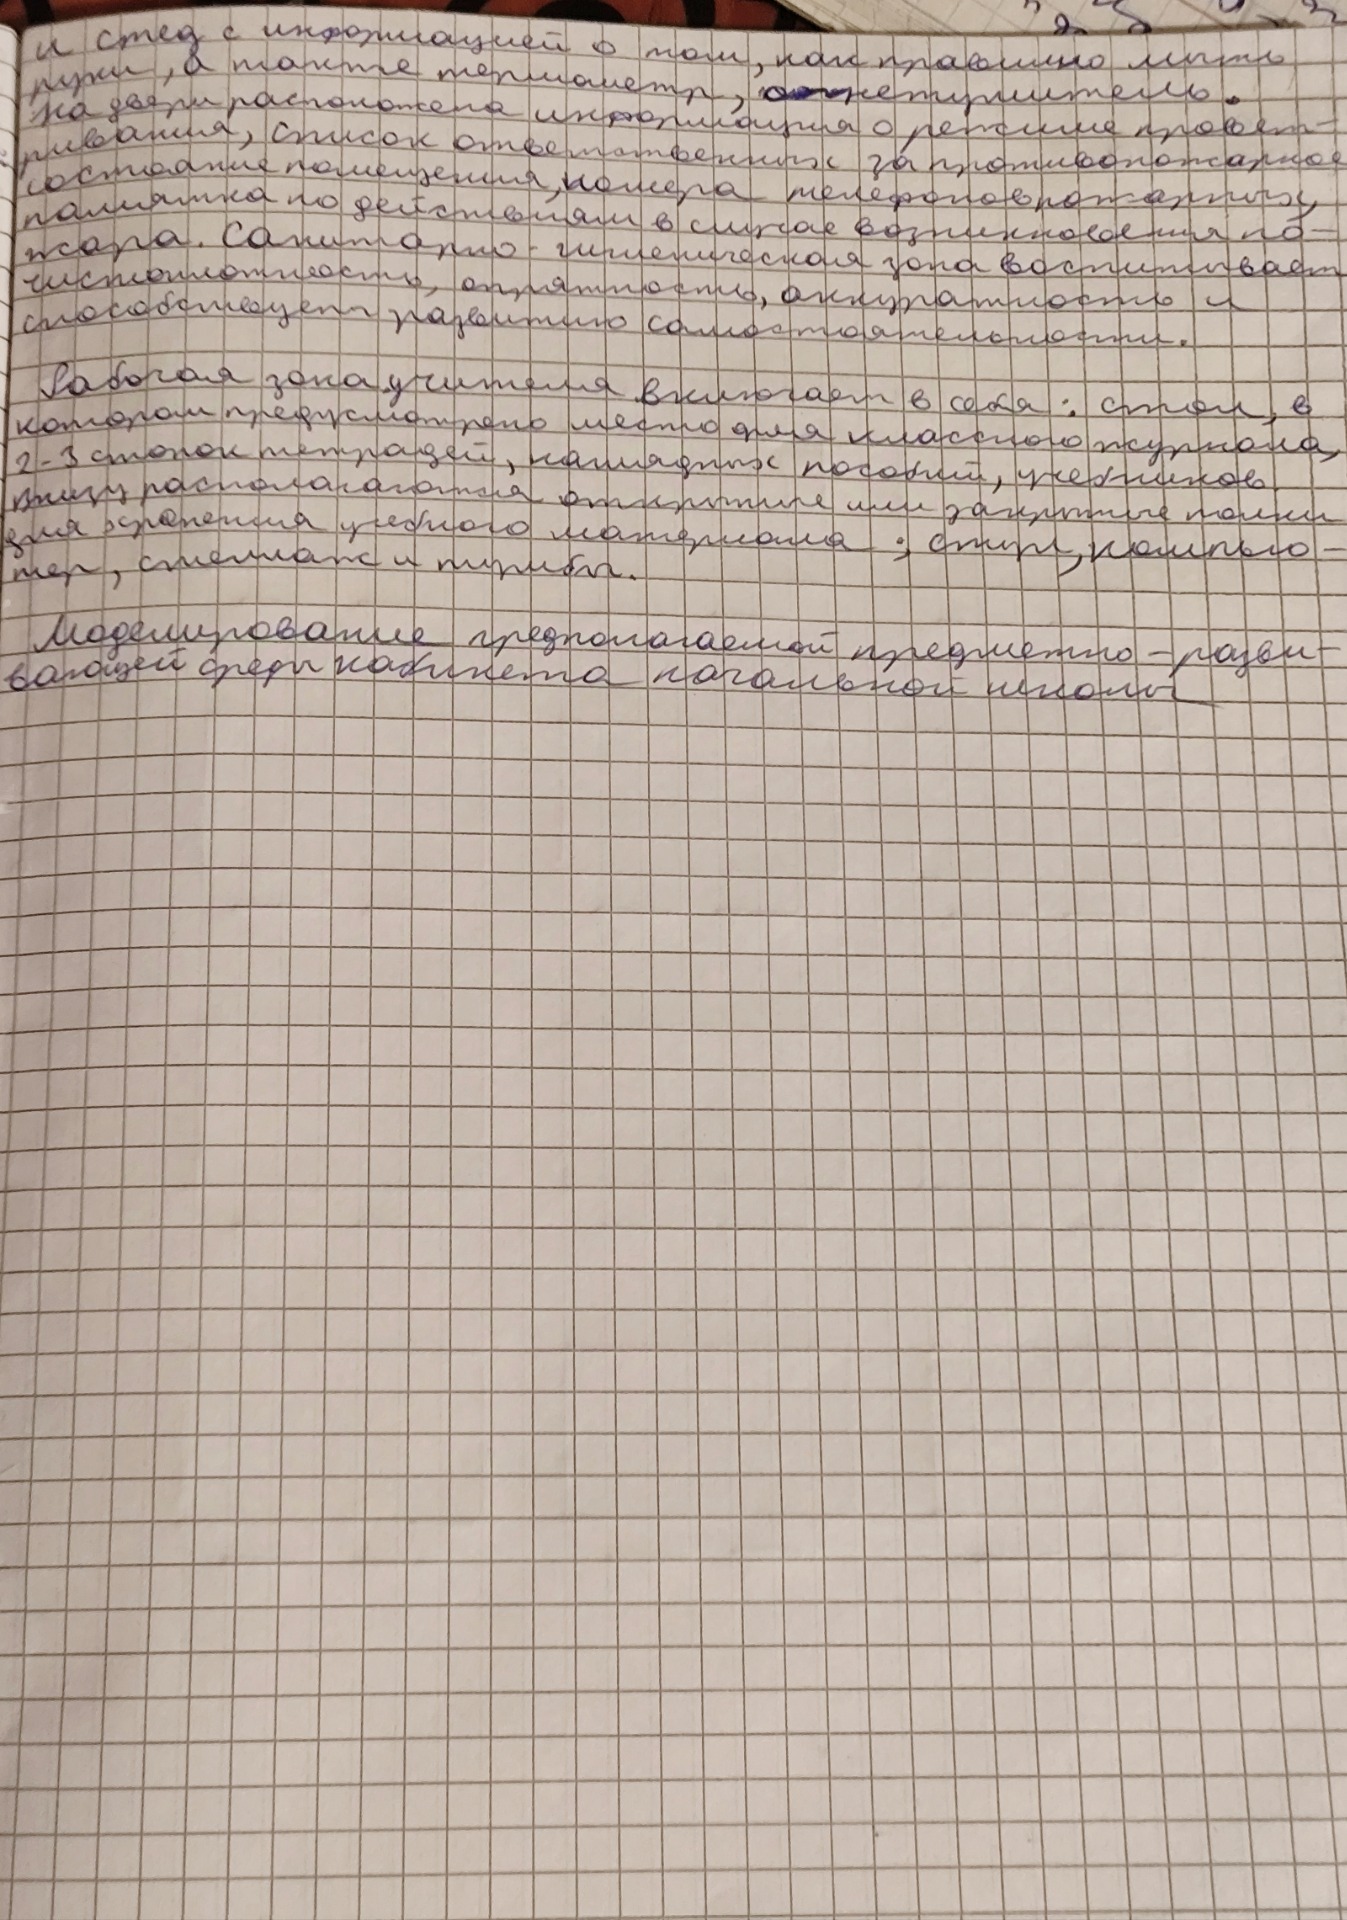 и стед с информацией о том, как правильно мыть
руки, а также термометр, огнетушитель.
На двери расположена информация о режиме провет-
ривания, список ответственных за противопожарное
состояние помещения, номера телефонов пожарных,
памятка по действиям в случае возникновения по-
жара. Санитарно-гигиеническая зона воспитывает
чистоплотность, опрятность, аккуратность и
способствует развитию самостоятельности.
Рабочая зона учителя включает в себя: стол, в
котором предусмотрено место для классного журнала,
2-3 стопок тетрадей, наглядных пособий, учебников.
Внизу располагаются открытые или закрытые полки
для хранения учебного материала; стул, компью-
тер, стеллаж и тумбы.
Моделирование предполагаемой предметно-разви-
вающей среды кабинета начальной школы